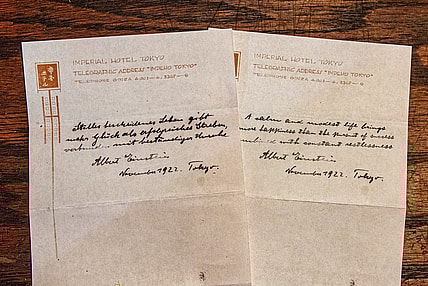 IMPERIAL HOTEL TOKYO
TELEGRAPHIC ADDRESS "IMPEHO TOKYO"
Stilles bescheidenes Leben gibt
mehr Glück als erfolgreiches Streben,
verbunden mit beständiger Unruhe.
Albert Einstein
November 1922. Tokyo.
IMPERIAL HOTEL TOKYO
TELEGRAPHIC ADDRESS "IMPEHO TOKYO"
A calm and modest life brings
more happiness than the pursuit of success
combined with constant restlessness
Albert Einstein
November 1922. Tokyo.